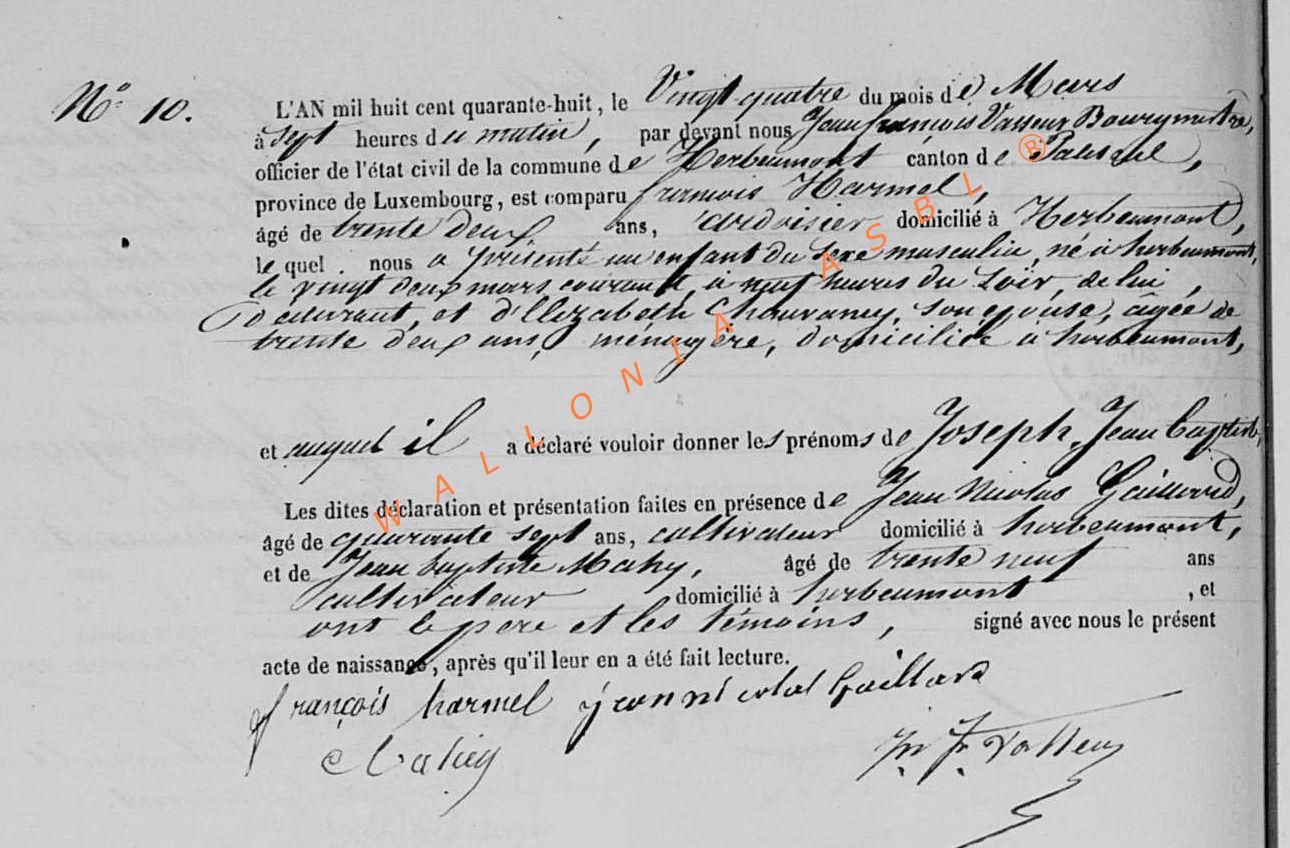 N.º 10.
L'AN mil huit cent quarante-huit, le Vingt quatre du mois de Mars
à sept heures du matin, par devant nous Jean françois Vasseur Bourgmestre,
officier de l'état civil de la commune de Herbeumont canton de Paliseul,
province de Luxembourg, est comparu françois Harmel,
âgé de trente deux ans, ardoisier domicilié à Herbeumont,
le quel nous a présenté un enfant du sexe masculin, né à herbeumont,
le vingt deux mars courant, à neuf heures du soir, de lui,
déclarant, et d'Elizabeth Chauvancy, son epouse, âgée de
trente deux ans, ménagère, domiciliée à herbeumont,
et auquel il a déclaré vouloir donner les prénoms de Joseph, Jean baptiste,
Les dites déclaration et présentation faites en présence de Jean Nicolas Gaillard,
âgé de quarante sept ans, cultivateur domicilié à herbeumont,
et de Jean baptiste Mahy, âgé de trente neuf ans
cultivateur domicilié à herbeumont, et
ont le pere et les témoins, signé avec nous le présent
acte de naissance, après qu'il leur en a été fait lecture.
françois harmel jean nicolas Gaillard
Jn Fr Vasseur
WALLONIA ASBL ®